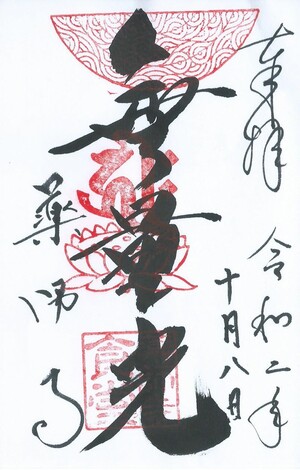 奉拝
令和二年
十月八日
無量光
藥師寺